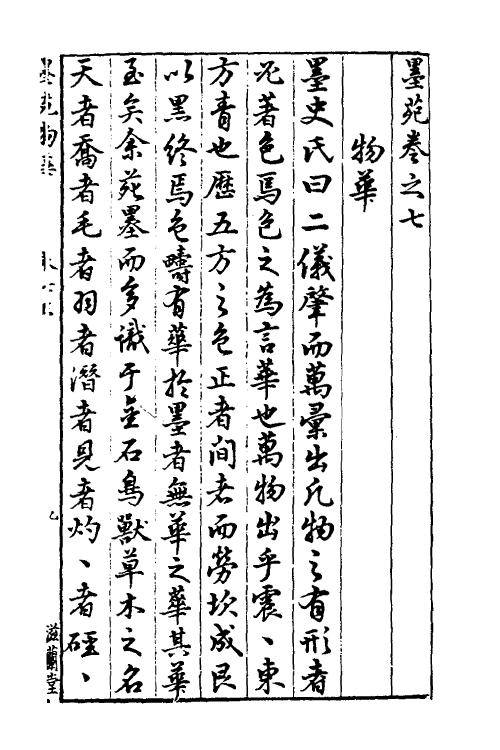 墨苑卷之七
物華
墨史氏曰二儀肇而萬彙出凡物之有形者
況著色焉色之為言華也萬物出乎震、東
方青也歷五方之色正者間者而勞坎成艮
以黑終焉色疇有華於墨者無華之華其華
至矣余苑墨而多識于金石鳥獸草木之名
天者喬者毛者羽者潛者見者灼、者硜、
墨苑物華
滋蘭堂